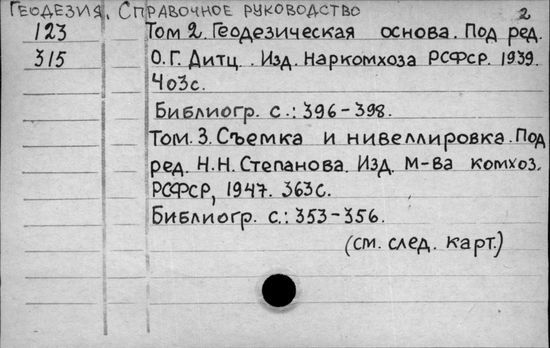 Геодезия. Справочное руководство 2
123 Том 2. Геодезическая основа. Под ред.
315 О.Г. Дитц. Изд. Наркомхоза РСФСР. 1939.
403с.
Библиогр. с.: 396-398.
Том. 3. Съемка и нивеллировка. Под
ред. Н.Н. Степанова. Изд. М-ва комхоз.
РСФСР, 1947. 363с.
Библиогр. с.: 353-356.
(см. след. карт.)